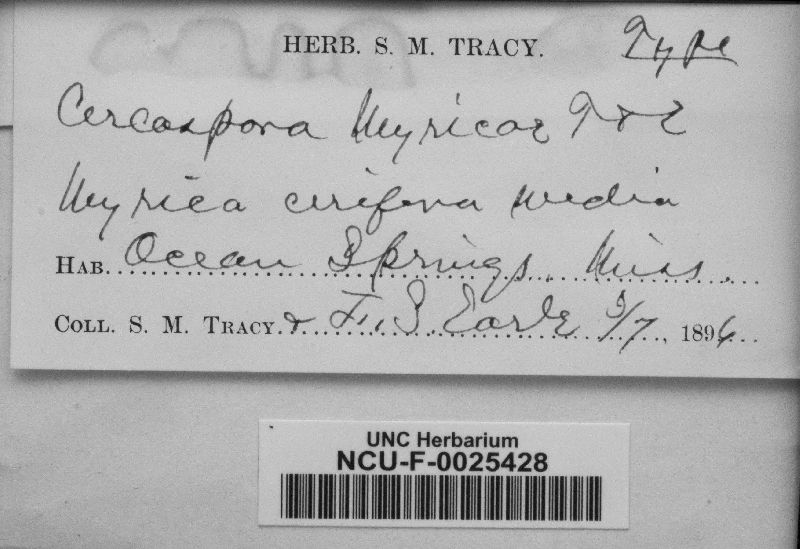 HERB. S. M. TRACY. Type
Cercospora Myricae T & E
Myrica cerifera media
HAB. Ocean Springs, Miss.
COLL. S. M. TRACY & F. S. Earle 5/7, 1896
UNC Herbarium
NCU-F-0025428